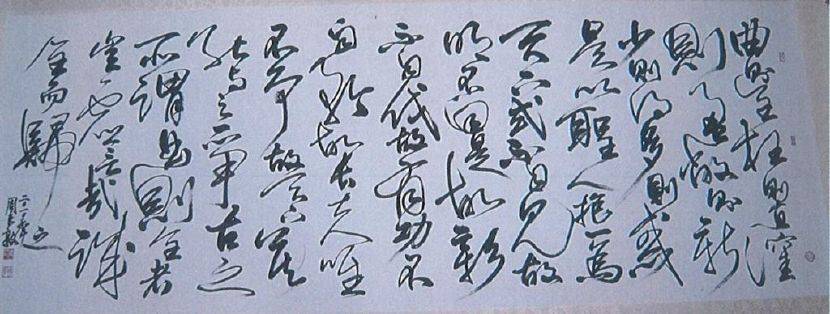 曲則全枉則直窪
則盈敝則新
少則得多則惑
是以聖人抱一為
天下式不自見故
明不自是故彰
不自伐故有功不
自矜故長夫唯
不爭故天下莫
能与之爭古之
所謂曲則全者
豈虛言哉誠
全而歸
之